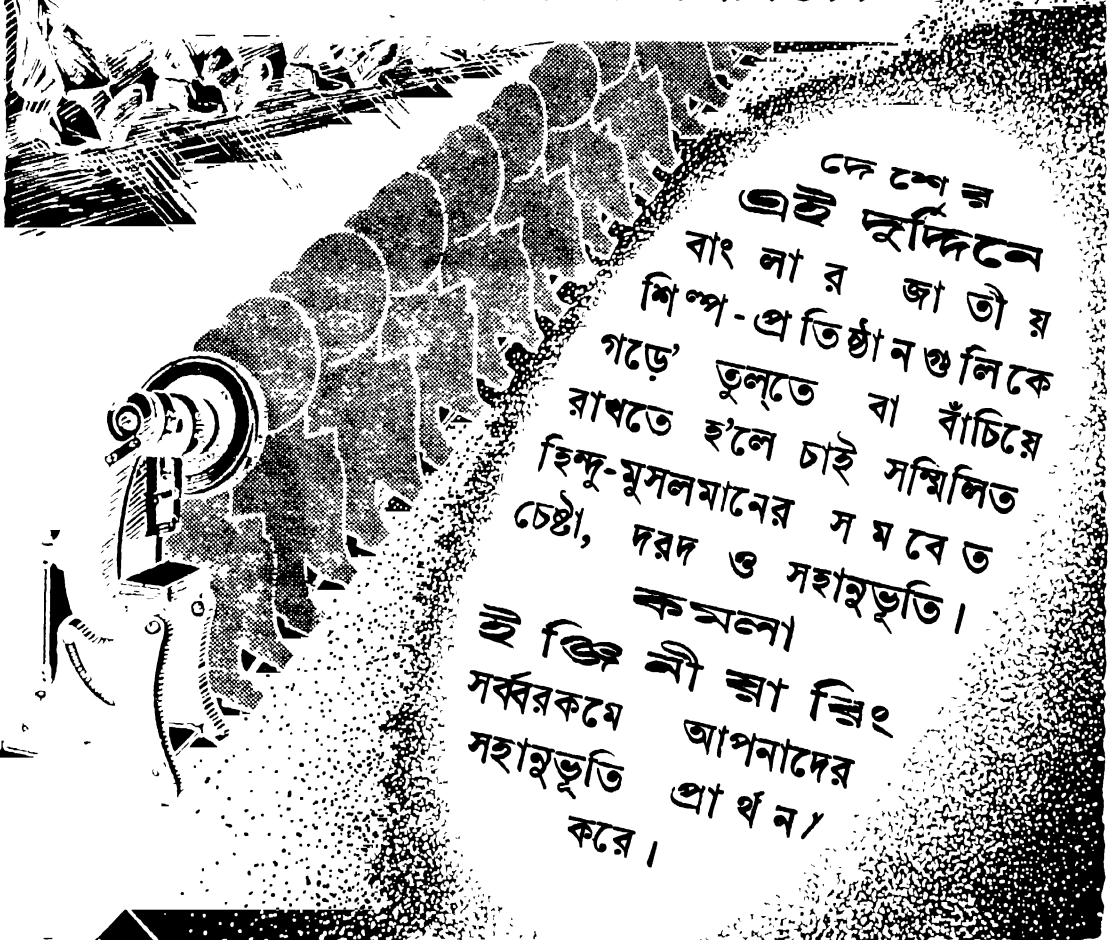 দেশের
এই দুর্দ্দিনে
বাংলার জাতীয়
শিল্প-প্রতিষ্ঠানগুলিকে
গড়ে’ তুল্‌তে বা বাঁচিয়ে
রাখতে হ’লে চাই সম্মিলিত
হিন্দু-মুসলমানের সমবেত
চেষ্টা, দরদ ও সহানুভূতি।
কমলা
ইঞ্জিনীয়ারিং
সর্ব্বরকমে আপনাদের
সহানুভূতি প্রার্থনা
করে।